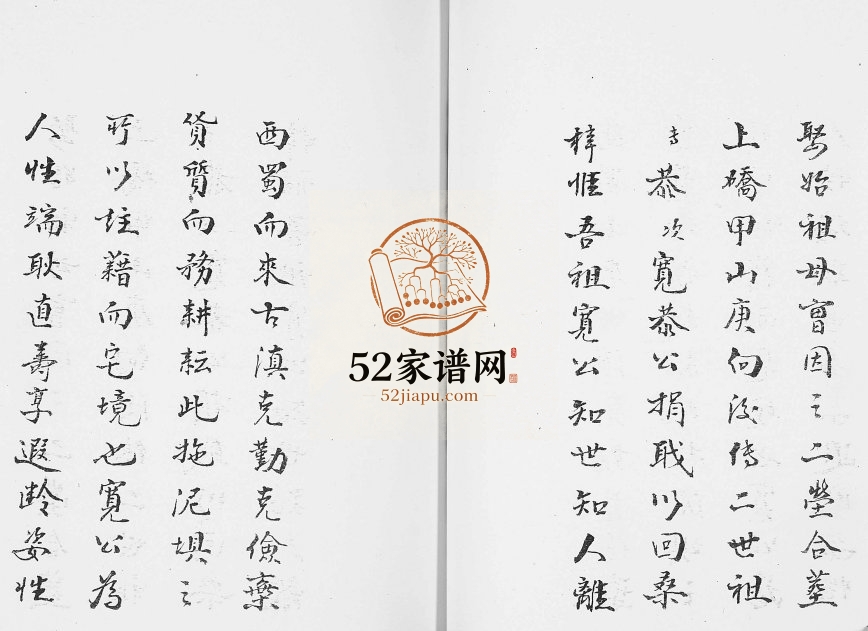 娶始祖母曾因之二塋合墓
上礄甲山庚向後傳二世祖
恭次寬恭公捐職以回桑
梓惟吾祖寬公知世知人離
西蜀而來古滇克勤克儉棄
貨質而務耕耘此拖泥埧之
所以註藉而宅境也寬公為
人性端耿直壽享遐齡姿性
52家谱网
52jiapu.com